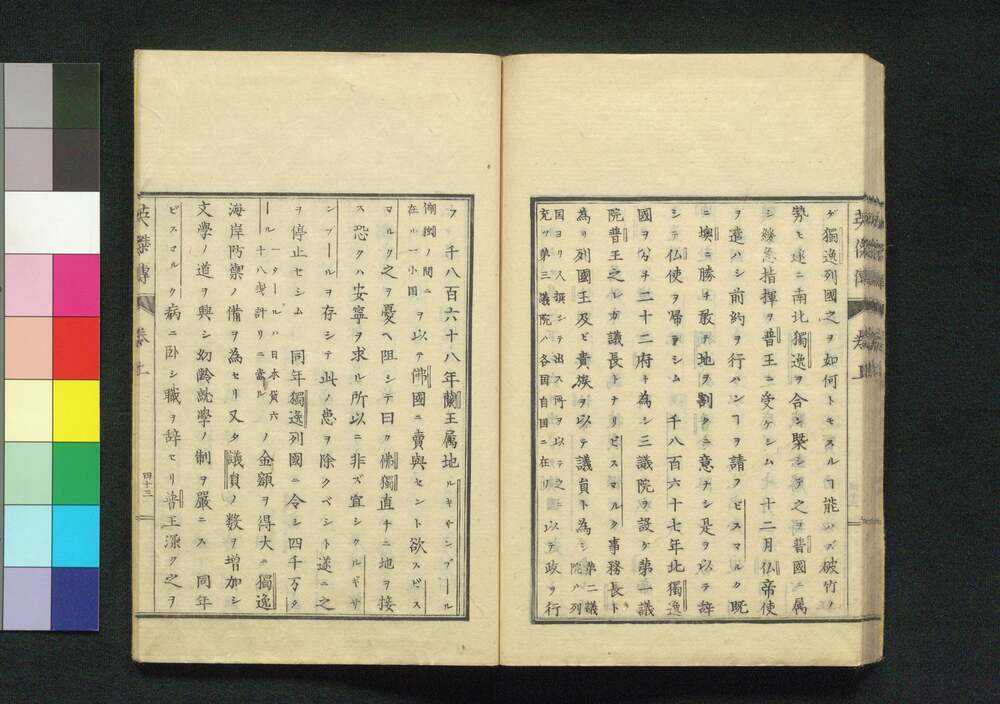 ゲ獨逸列國之ヲ如何トモスルヿ能ハズ破竹ノ
勢ヒ遂ニ南北獨逸ヲ合シ擧シテ之ヲ普國ニ属
シ緩急指揮ヲ普王ニ受ケシム十二月仏帝使
ヲ遣ハシ前約ヲ行ハンヿヲ請フビスマルク既
ニ墺ニ勝チ敢テ地ヲ割クニ意ナシ是ヲ以テ辞
シテ仏使ヲ帰ラシム 千八百六十七年北獨逸
國ヲ分チ二十二府ト為シ三議院ヲ設ケ第一議
院普王之レガ議長トナリビスマルク事務長ト
為リ列國王及ビ貴族ヲ以テ議員ト為シ第二議院ハ列
国ヨリ人撰シテ出ス所ヲ以テ之ニ
充ツ第三議院ハ各国自国ニ在リ以テ政ヲ行
フ 千八百六十八年蘭王属地ルキサンブール
佛獨ノ間ニ
在ル一小国ヲ以テ佛國ニ賣與セント欲スビス
マルク之ヲ憂ヘ阻シテ曰ク佛獨直チニ地ヲ接
ス恐クハ安寧ヲ求ル所以ニ非ズ宜シクルキサ
ンブールヲ存シテ此ノ患ヲ除クベシト遂ニ之
ヲ停止セシム 同年獨逸列國ニ令シ四千万タ
ール一タールハ日本貨六
十八戔計リニ當ルノ金額ヲ得大ニ獨逸
海岸防禦ノ備ヲ為セリ又タ議員ノ数ヲ増加シ
文學ノ道ヲ興シ幼齢就學ノ制ヲ嚴ニス 同年
ビスマルク病ニ卧シ職ヲ辞セリ普王深ク之ヲ
英傑傳 巻上
四十三